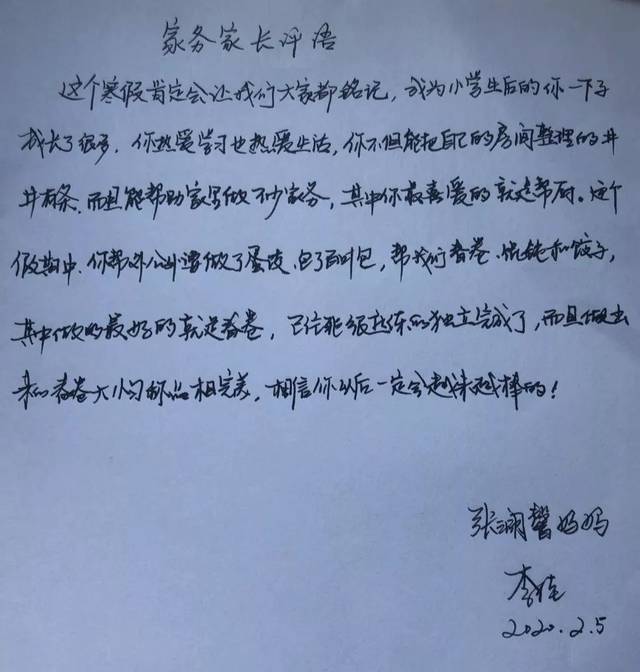 家务家长评语
这个寒假肯定会让我们大家都铭记，成为小学生后的你一下子
成长了很多，你热爱学习也热爱生活，你不但能把自己的房间整理的井
井有条，而且能帮助家里做不少家务，其中你最喜爱的就是帮厨。这个
假期中，你帮外公外婆做了蛋饺、包了面包，帮我们春卷、馄饨和饺子，
其中做的最好的就是春卷，已经能很熟练的独立完成了，而且做出
来的春卷大小匀称品相完美，相信你以后一定会越来越棒的！
张澜馨妈妈
李佳
2020.2.5